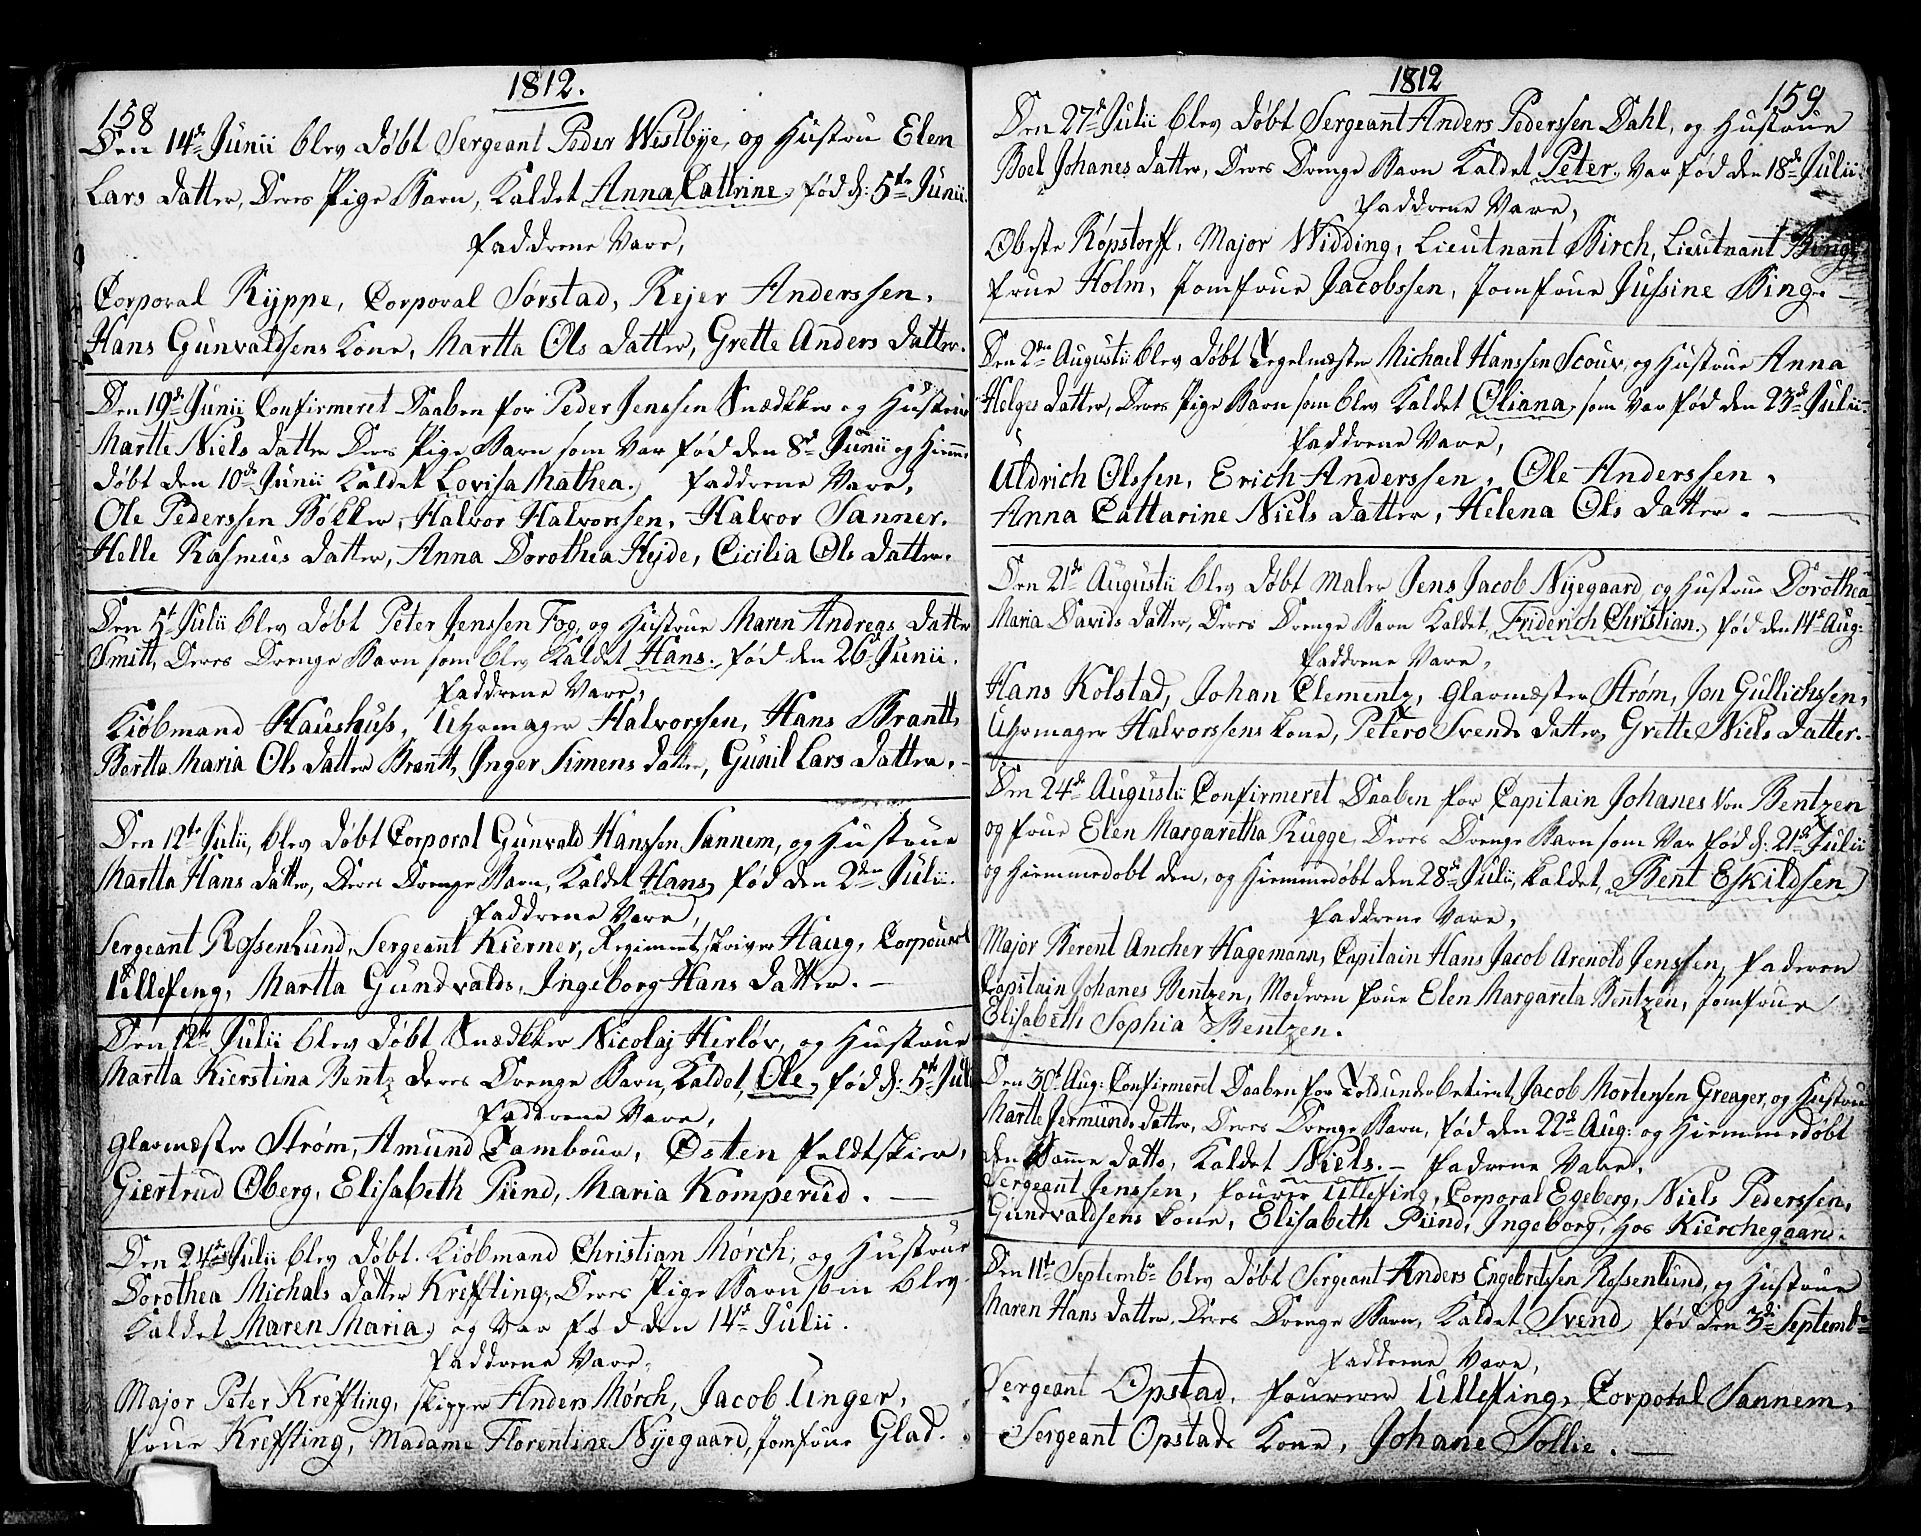 1812.
158
Den 14de Junii blev Døbt Sergeant Peder Westbye, og Hustru Elen
Lars Datter, Deres Pige Barn, Kaldet Anna Cattrine, fød d: 5te Junii.
Faddrene Vare,
Corporal Ryppe, Corporal Sørstad, Rejer Anderssen,
Hans Gunvaldsens Kone, Martta Ols Datter, Grette Anders Datter.
Den 19de Junii Confirmeret Daaben for Peder Jenssen Snædkker og Hustrue
Martte Niels Datter Deres Pige Barn som Var fød den 8de Junii og Hiemme
døbt den 10de Junii Kaldet Lovisa Mathea. Faddrene Vare,
Ole Pederssen Bøkker, Halvor Halvorssen, Halvor Sanner.
Helle Rasmus Datter, Anna Dorothea Hejde, Cicilia Ols Datter.
Den 5t Julii blev Døbt Peter Jenssen Fog, og Hustrue Maren Andreas Datter
Smitt, Deres Drenge Barn som blev Kaldet Hans. fød den 26t Junii.
Faddrene Vare,
Kiøbmand Haushuss, Uhrmager Halvorssen, Hans Brantt,
Bertta Maria Ols Datter Brantt, Inger Simens Datter, Gunil Lars Datter.
Den 12te Julii, blev Døbt Corporal Gunvald Hanssen Sannem, og Hustrue
Martta Hans Datter, Deres Drenge Barn, Kaldet Hans, fød den 2den Julii.
Faddrene Vare,
Sergeant Rossenlund, Sergeant Kierner, Regimentskriver Haug, Corporal
Ulleleng, Martta Gundvalds, Ingeborg Hans Datter.
Den 12te Julii blev Døbt Snædkker Nicolaj Herløv, og Hustrue
Martta Kierstina Bentz deres Drenge Barn, Kaldet, Ole, fød d: 5te Juli
Faddrene Vare,
Glarmæster Strøm, Amund Tambour, Østen Feldtskier,
Giertrud Oberg, Elisabeth Pünd, Maria Komperud.
Den 24de Julii blev Døbt. Kiøbmand Christian Mørch, og Hustrue
Dorothea Michals Datter Kreffting, Deres Pige Barn som blev
Kaldet Maren Maria, og Var fød den 14de Julii.
Faddrene Vare,
Major Peter Kreffting, Skipper Anders Mørch, Jacob Unger,
Frue Kreffting, Madame Florentine Nyegaard, Jomfrue Glad.
1812
159
Den 27de Julii blev Døbt Sergeant Anders Pederssen Dahl, og Hustrue
Boel Johanes Datter, Deres Drenge Barn Kaldet Peter, Var fød den 18de Julii
Faddrene Vare,
Obeste Røpstorff, Major Widding, Lieutnant Birch, Lieutnant Bing,
Frue Holm, Jomfrue Jacobssen, Jomfrue Jussine Bing.
Den 2den Augustii blev Døbt Tegelmæster Michael Hanssen Scouv, og Hustrue Anna
Helges Datter, Deres Pige Barn som blev Kaldet Oliana, som Var fød den 23de Julii.
Faddrene Vare,
Uldrich Olssen, Erich Anderssen, Ole Anderssen,
Anna Cattarine Niels Datter, Helena Ols Datter.
Den 21de Augustii blev Døbt Maler Jens Jacob Nyegaard og Hustrue Dorothea
Maria Davids Datter, Deres Drenge Barn Kaldet, Friderich Christian. fød den 14de Aug:
Faddrene Vare,
Hans Kolstad, Johan Clementz, Glarmæster Strøm, Jon Gullichssen,
Uhrmager Halvorssens Kone, Petero Svends Datter, Grette Niels Datter.
Den 24de Augustii Confirmeret Daaben for Capitain Johanes Von Bentzen
og Frue Elen Margaretha Rugge, Deres Drenge Barn som Var fød d: 21de Julii
og Hiemmedøbt den, og Hiemmedøbt den 28de Julii, Kaldet, Bent Eskildsen
Faddrene Vare,
Major Berent Ancher Hagemann, Capitain Hans Jacob Arenold Jenssen, Faderen
Capitain Johanes Bentzen, Moderen Frue Elen Margareta Bentzen, Jomfrue
Elisabeth Sophia Bentzen.
Den 30t Aug: Confirmeret Daaben for Toldunderbetient, Jacob Mortensen Greager, og Hustrue
Martte Jermunds Datter, Deres Drenge Barn, fød den 22de Aug: og Hiemmedøbt
den Samme Datto, Kaldet Niels. Fadrene Vare,
Sergeant Jenssen, Fourer Ulleling, Corporal Egeberg, Niels Pederssen,
Gundvaldsens Kone, Elisabeth Pünd, Ingeborg, hos Kierchegaard.
Den 11te Septembr blev Døbt Sergeant Anders Engebretssen Rossenlund, og Hustrue
Maren Hans Datter, Deres Drenge Barn, Kaldet Svend, fød den 3die Septembr
Faddrene Vare,
Sergeant Opstad, Fourerer Ulleling, Corporal Sannem,
Sergeant Opstads Kone, Johane Sollie.